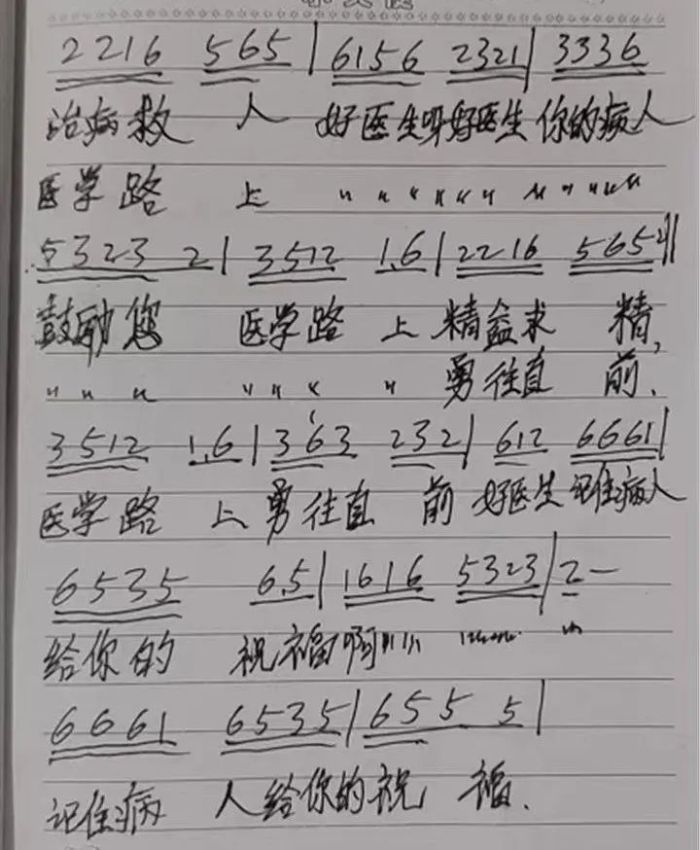 2216 565 | 6156 2321 | 3336
治病救 人 好医生呀好医生 你的病人
医学路 上 〃 〃 〃 〃 〃 〃 〃 〃 〃 〃 〃
5323 2 | 3512 1.6 | 2216 565 :||
鼓励您 医学路 上 精益求 精,
〃 〃 〃 〃 〃 〃 〃 勇往直 前.
3512 1.6 | 363 232 | 612 6661 |
医学路 上 勇往直 前 好医生 记住病人
6535 6.5 | 1616 5323 | 2 —
给你的 祝福啊
6661 6535 | 655 5 |
记住病 人给你的祝 福.